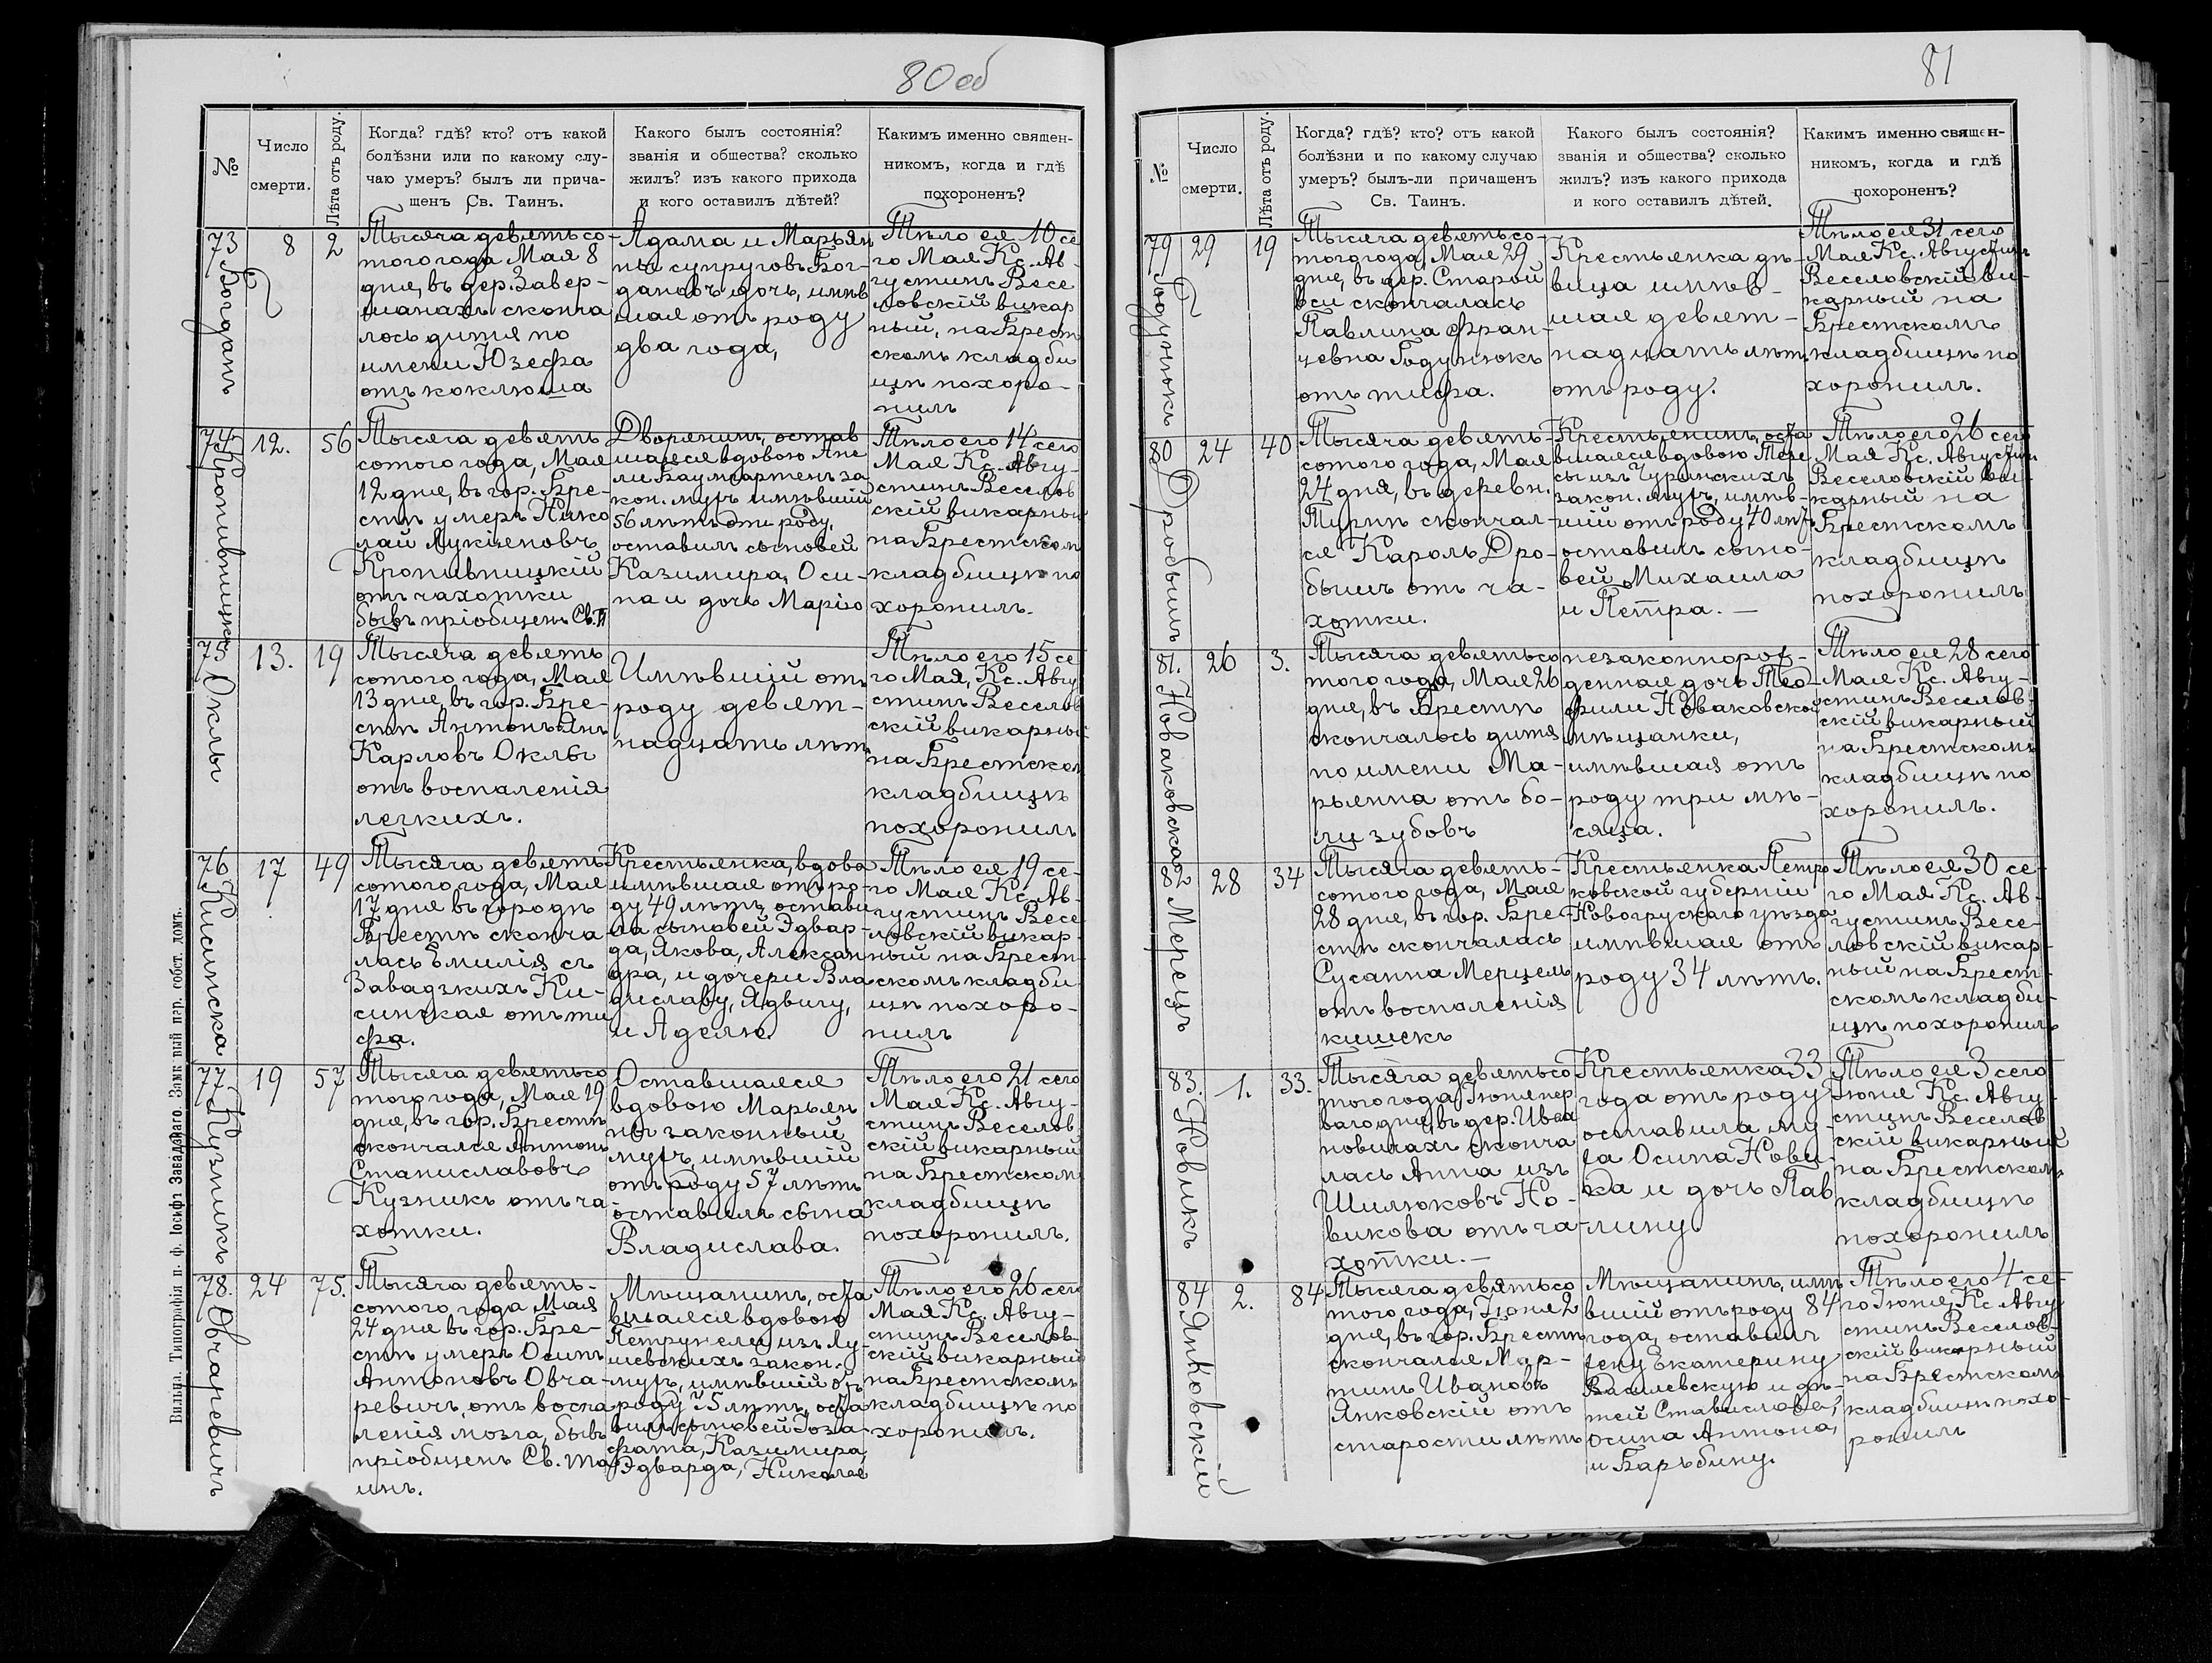 80 об
№
Число
смерти.
Лѣта отъ роду.
Когда? гдѣ? кто? отъ какой
болѣзни или по какому слу-
чаю умеръ? былъ ли прича-
щенъ Св. Таинъ.
Какого былъ состоянія?
званія и общества? сколько
жилъ? изъ какого прихода
и кого оставилъ дѣтей?
Какимъ именно священ-
никомъ, когда и гдѣ
похороненъ?
73
Богданъ
8
2
Тысяча девятьсо-
того года Мая 8
дня, въ дер. Завер-
шанахъ сконча
лось дитя по
имени Юзефа
отъ коклюша
Адама и Марьян
ны супруговъ Бог-
дановъ дочь, имѣв
шая отъ роду
два года,
Тѣло ея 10 се
го Мая Кс. Ав-
густинъ Весе
ловскій викар
ный, на Брест
скомъ кладби
щѣ похоро-
нилъ
74
Кропивницкій
12.
56
Тысяча девять
сотого года, Мая
12 дня, въ гор. Бре-
стѣ умеръ Нико
лай Лукіяновъ
Кропивницкій
отъ чахотки
бывъ пріобщенъ Св. Т
Дворянинъ, остав
шаяся вдовою Ане
ли Баумгартенъ за
кон. мужъ имѣвшій
56 лѣтъ отъ роду,
оставилъ сыновей
Казимира, Оси-
па и дочь Марію
Тѣло его 14 сего
Мая Кс. Авгу-
стинъ Веселов
скій викарный
на Брестском
кладбищѣ по
хоронилъ.
75
Оклы
13.
19
Тысяча девять
сотого года, Мая
13 дня, въ гор. Бре-
стѣ Антонъ Янъ
Карловъ Оклы
отъ воспаленія
легкихъ.
Имѣвшій отъ
роду девят-
надцать лѣтъ
Тѣло его 15 се
го Мая, Кс. Авгу
стинъ Веселов
скій викарный
на Брестском
кладбищѣ
похоронилъ
76
Кисинска
17
49
Тысяча девять
сотого года, Мая
17 дня въ городѣ
Брестѣ сконча
лась Эмилія съ
Завадзкихъ Ки-
синская отъ ти
фа.
Крестьянка, вдова
имѣвшая отъ ро-
ду 49 лѣтъ, остави
ла сыновей Эдвар-
да, Якова, Алексан
дра, и дочери Вла
диславу, Ядвигу,
и Аделю.
Тѣло ея 19 се-
го Мая Кс. Ав-
густинъ Весе
ловскій викар-
ный на Брест-
скомъ кладби
щѣ похоро-
нилъ
77
Кузникъ
19
57
Тысяча девятьсо
того года, Мая 19
дня, въ гор. Брестѣ
скончался Антонъ
Станиславовъ
Кузникъ отъ ча
хотки.
Оставшаяся
вдовою Марьян
ны законный
мужъ, имѣвшій
отъ роду 57 лѣтъ
оставилъ сына
Владислава.
Тѣло его 21 сего
Мая Кс. Авгу-
стинъ Веселов
скій викарный
на Брестском
кладбищѣ
похоронилъ.
78.
Овчаревичъ
24
75.
Тысяча девять-
сотого года Мая
24 дня въ гор. Бре-
стѣ умеръ Осипъ
Антоновъ Овча-
ревичъ, отъ воспа
ленія мозга, бывъ
пріобщенъ Св. та
инъ.
Мѣщанинъ, оста
вшаяся вдовою
Петрунели изъ Лу-
шевскихъ закон.
мужъ, имѣвшій отъ
роду 75 лѣтъ, оста
вилъ сыновей Іоза-
фата, Казимира,
Эдварда, Николая
Тѣло его 26 сего
Мая Кс. Авгу-
стинъ Веселов-
скій викарный
на Брестскомъ
кладбищѣ по
хоронилъ.
Вильна. Типографія п. ф. Іосифъ Завадзкаго. Замковый пер. собст. домъ.
81
№
Число
смерти.
Лѣта отъ роду.
Когда? гдѣ? кто? отъ какой
болѣзни и по какому случаю
умеръ? былъ-ли причащенъ
Св. Таинъ.
Какого былъ состоянія?
званія и общества? сколько
жилъ? изъ какого прихода
и кого оставилъ дѣтей.
Какимъ именно священ-
никомъ, когда и гдѣ
похороненъ?
79
Годунюкъ
29
19
Тысяча девятьсо-
того года, Мая 29
дня, въ дер. Старой
вси скончалась
Павлина Фран-
чевна Годунюкъ
отъ тифа.
Крестьянка дѣ-
вица имѣв-
шая девят-
надцать лѣт.
отъ роду.
Тѣло ея 31 сего
Мая Кс. Августинъ
Веселовскій ви-
карный на
Брестскомъ
кладбищѣ по
хоронилъ.
80
Дробышъ
24
40
Тысяча девять-
сотого года, Мая
24 дня, въ деревн.
Тюринѣ скончал-
ся Кароль Дро-
бышъ отъ ча-
хотки.
Крестьянинъ, оста
вшаяся вдовою Тере
сы изъ Чуринскихъ
закон. мужъ, имѣв-
шій отъ роду 40 лѣт
оставилъ сыно-
вей Михаила
и Петра. —
Тѣло его 26 сего
Мая Кс. Августин
Веселовскій ви-
карный на
Брестскомъ
кладбищѣ
похоронилъ
81.
Новаковская
26
3.
Тысяча девятьсо
того года, Мая 26
дня, въ Брестѣ
скончалось дитя
по имени Ма-
рьянна отъ бо-
ли зубовъ
незаконнорож-
денная дочь Тео-
фили Новаковской
мѣщанки,
имѣвшая отъ
роду три мѣ-
сяца.
Тѣло ея 28 сего
Мая Кс. Авгу-
стинъ Веселов-
скій викарный
на Брестскомъ
кладбищѣ по
хоронилъ.
82
Мерецъ
28
34
Тысяча девять-
сотого года, Мая
28 дня, въ гор. Бре-
стѣ скончалась
Сусанна Мерцель
отъ воспаленія
кишекъ
Крестьянка Петр
ковской губерніи
Новогрускаго уѣзда
имѣвшая отъ
роду 34 лѣтъ.
Тѣло ея 30 се-
го Мая Кс. Ав-
густинъ Весе-
ловскій викар-
ный на Брест-
скомъ кладби-
щѣ похоронилъ
83.
Новикъ
1.
33.
Тысяча девятьсо
того года, Іюня пер
ваго дня, въ дер. Ива
новичахъ сконча
лась Анна изъ
Шилюковъ Но-
викова отъ ча-
хотки. —
Крестьянка 33
года отъ роду
оставила му-
жа Осипа Нови-
ка и дочь Пав
лину
Тѣло ея 3 сего
Іюня Кс. Авгу-
стинъ Веселов
скій викарный
на Брестскомъ
кладбищѣ
похоронилъ
84
Янковскій
2.
84
Тысяча девятьсо
того года, Іюня 2
дня, въ гор. Брестѣ
скончался Мар-
тинъ Ивановъ
Янковскій отъ
старости лѣтъ
Мѣщанинъ, имѣ
вшій отъ роду 84
года, оставилъ
жену Екатерину
Василевскую и дѣ-
тей Станислава,
Осипа Антона,
и Барьбину.
Тѣло его 4 се-
го Іюня, Кс. Авгу
стинъ Веселов-
скій викарный
на Брестскомъ
кладбищѣ похо-
ронилъ